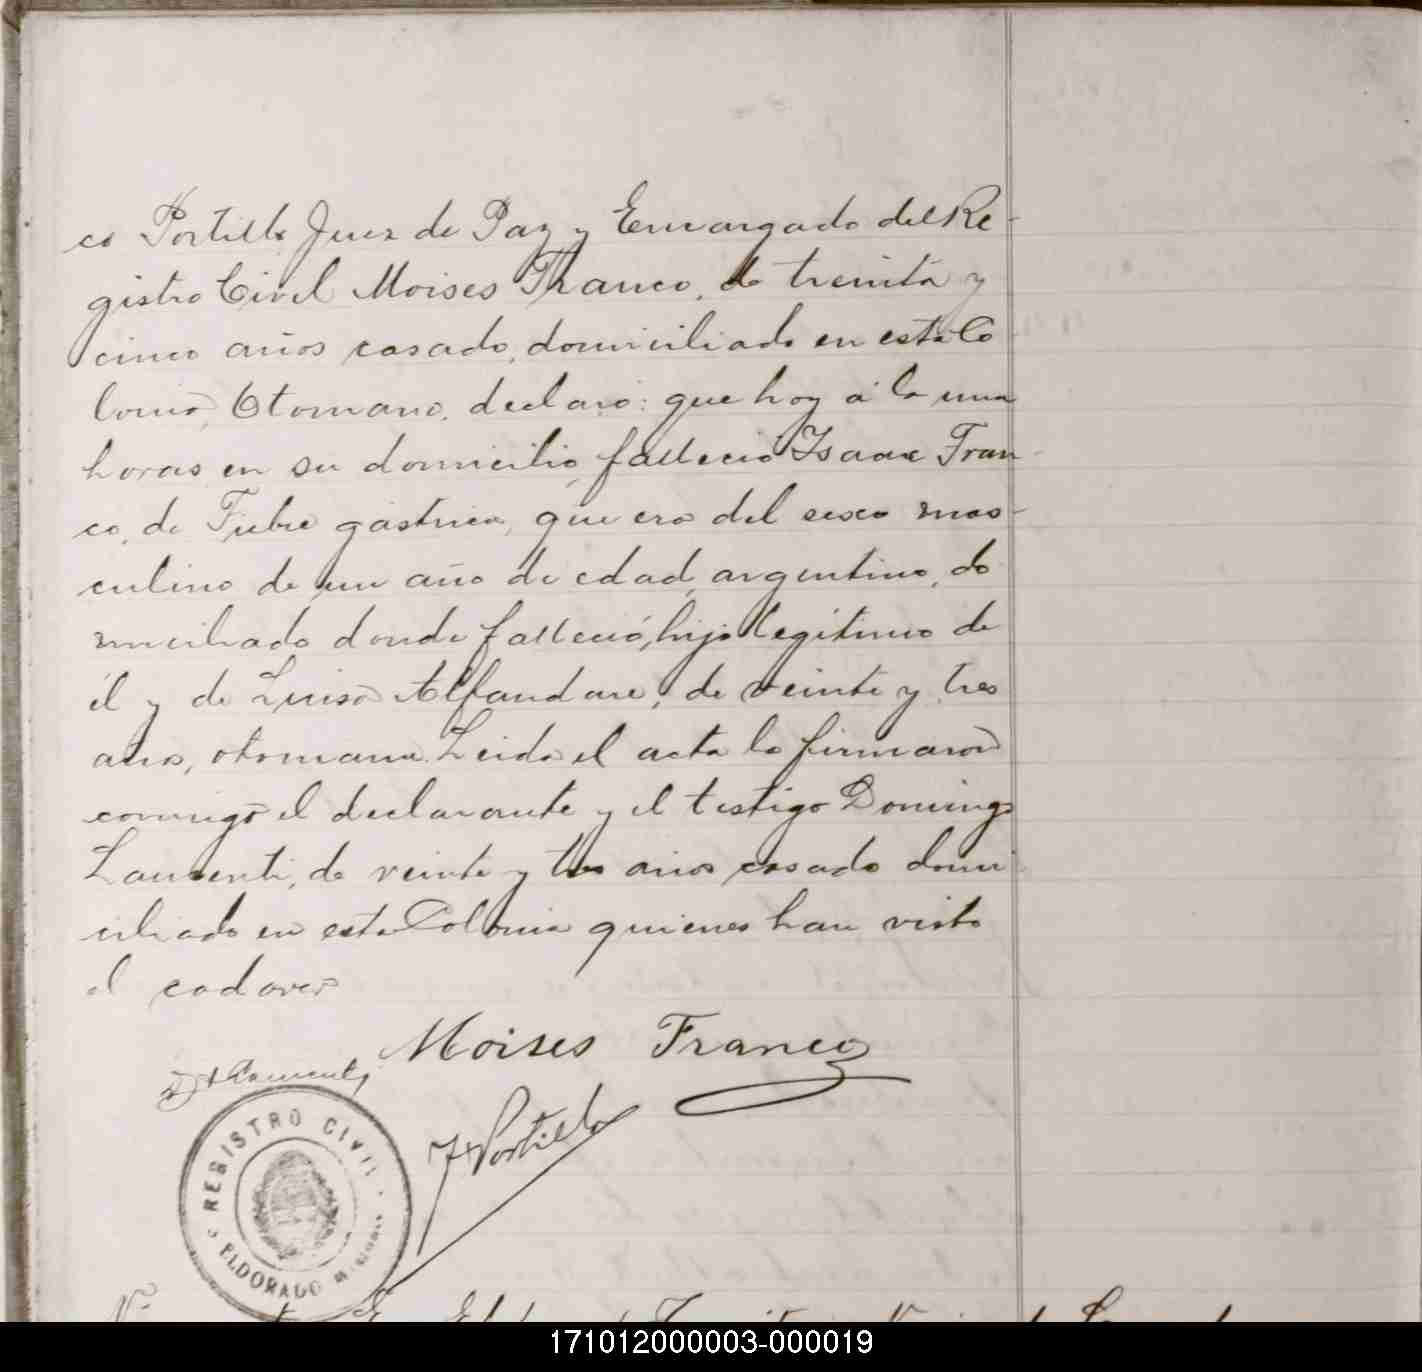 co Portillo Juez de Paz y Encargado del Re-
gistro Civil Moises Franco, de treinta y
cinco años casado, domiciliado en esta Co-
lonia, Otomano, declaró: que hoy á la una
horas en su domicilio, falleció Isaac Fran-
co, de Fiebre gastrica, que era del sexo mas-
culino de un año de edad, argentino, do-
miciliado donde falleció, hijo legitimo de
él y de Luisa Alfandare, de veinte y tres
años, otomana. Leida el acta la firmaron
conmigo el declarante y el testigo Domingo
Laurenti, de veinte y tres años casado domi-
ciliado en esta Colonia quienes han visto
el cadaver
Moises Franco
F Portillo
REGISTRO CIVIL
ELDORADO
171012000003-000019